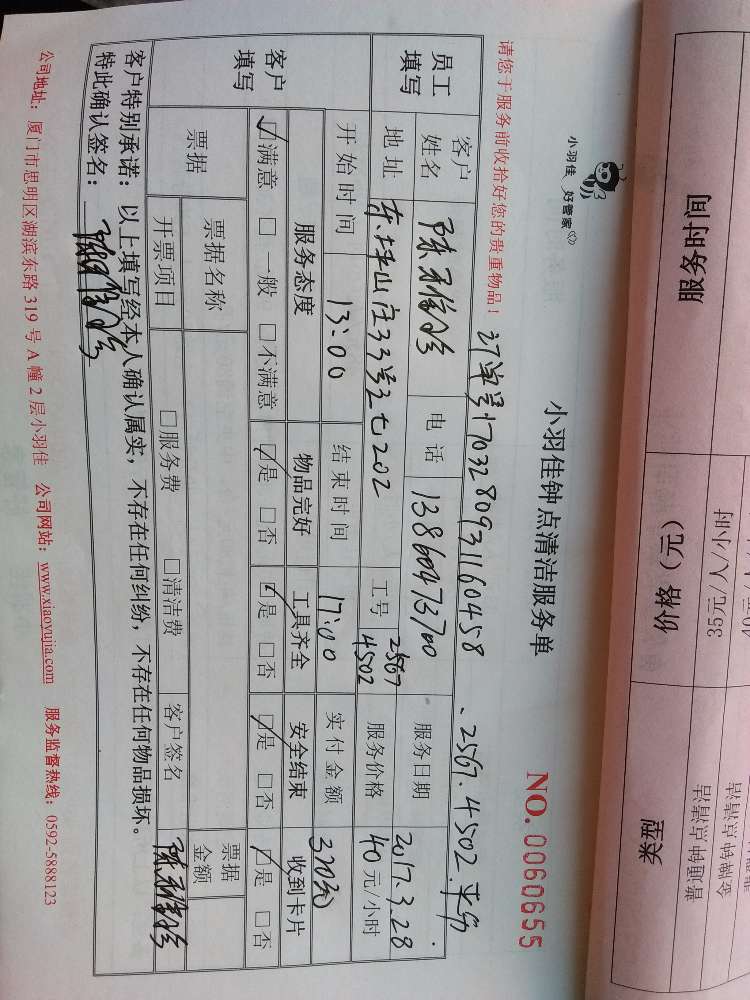 小羽佳 好管家
小羽佳钟点清洁服务单
NO. 0060655
请您于服务前收拾好您的贵重物品！
订单号1703280931160458 、2567.4502.
员工填写
客户姓名
电话 13860473700
服务日期 2017.3.28
地址 东坪山庄33号之七202
工号 2567 4502
服务价格 40元/小时
客户填写
开始时间 13:00
结束时间 17:00
实付金额 320元
服务态度 物品完好 工具齐全 安全结束 收到卡片
☑满意 □一般 □不满意 ☑是 □否 ☑是 □否 ☑是 □否 ☑是 □否
票据
票据名称
票据金额
开票项目 □服务费 □清洁费 客户签名
客户特别承诺：以上填写经本人确认属实，不存在任何纠纷，不存在任何物品损坏。
特此确认签名：
公司地址：厦门市思明区湖滨东路319号A幢2层小羽佳 公司网站：www.xiaoyujia.com 服务监督热线：0592-5888123
服务时间
价格（元）
类型
35元/人/小时
普通钟点清洁
金牌钟点清洁